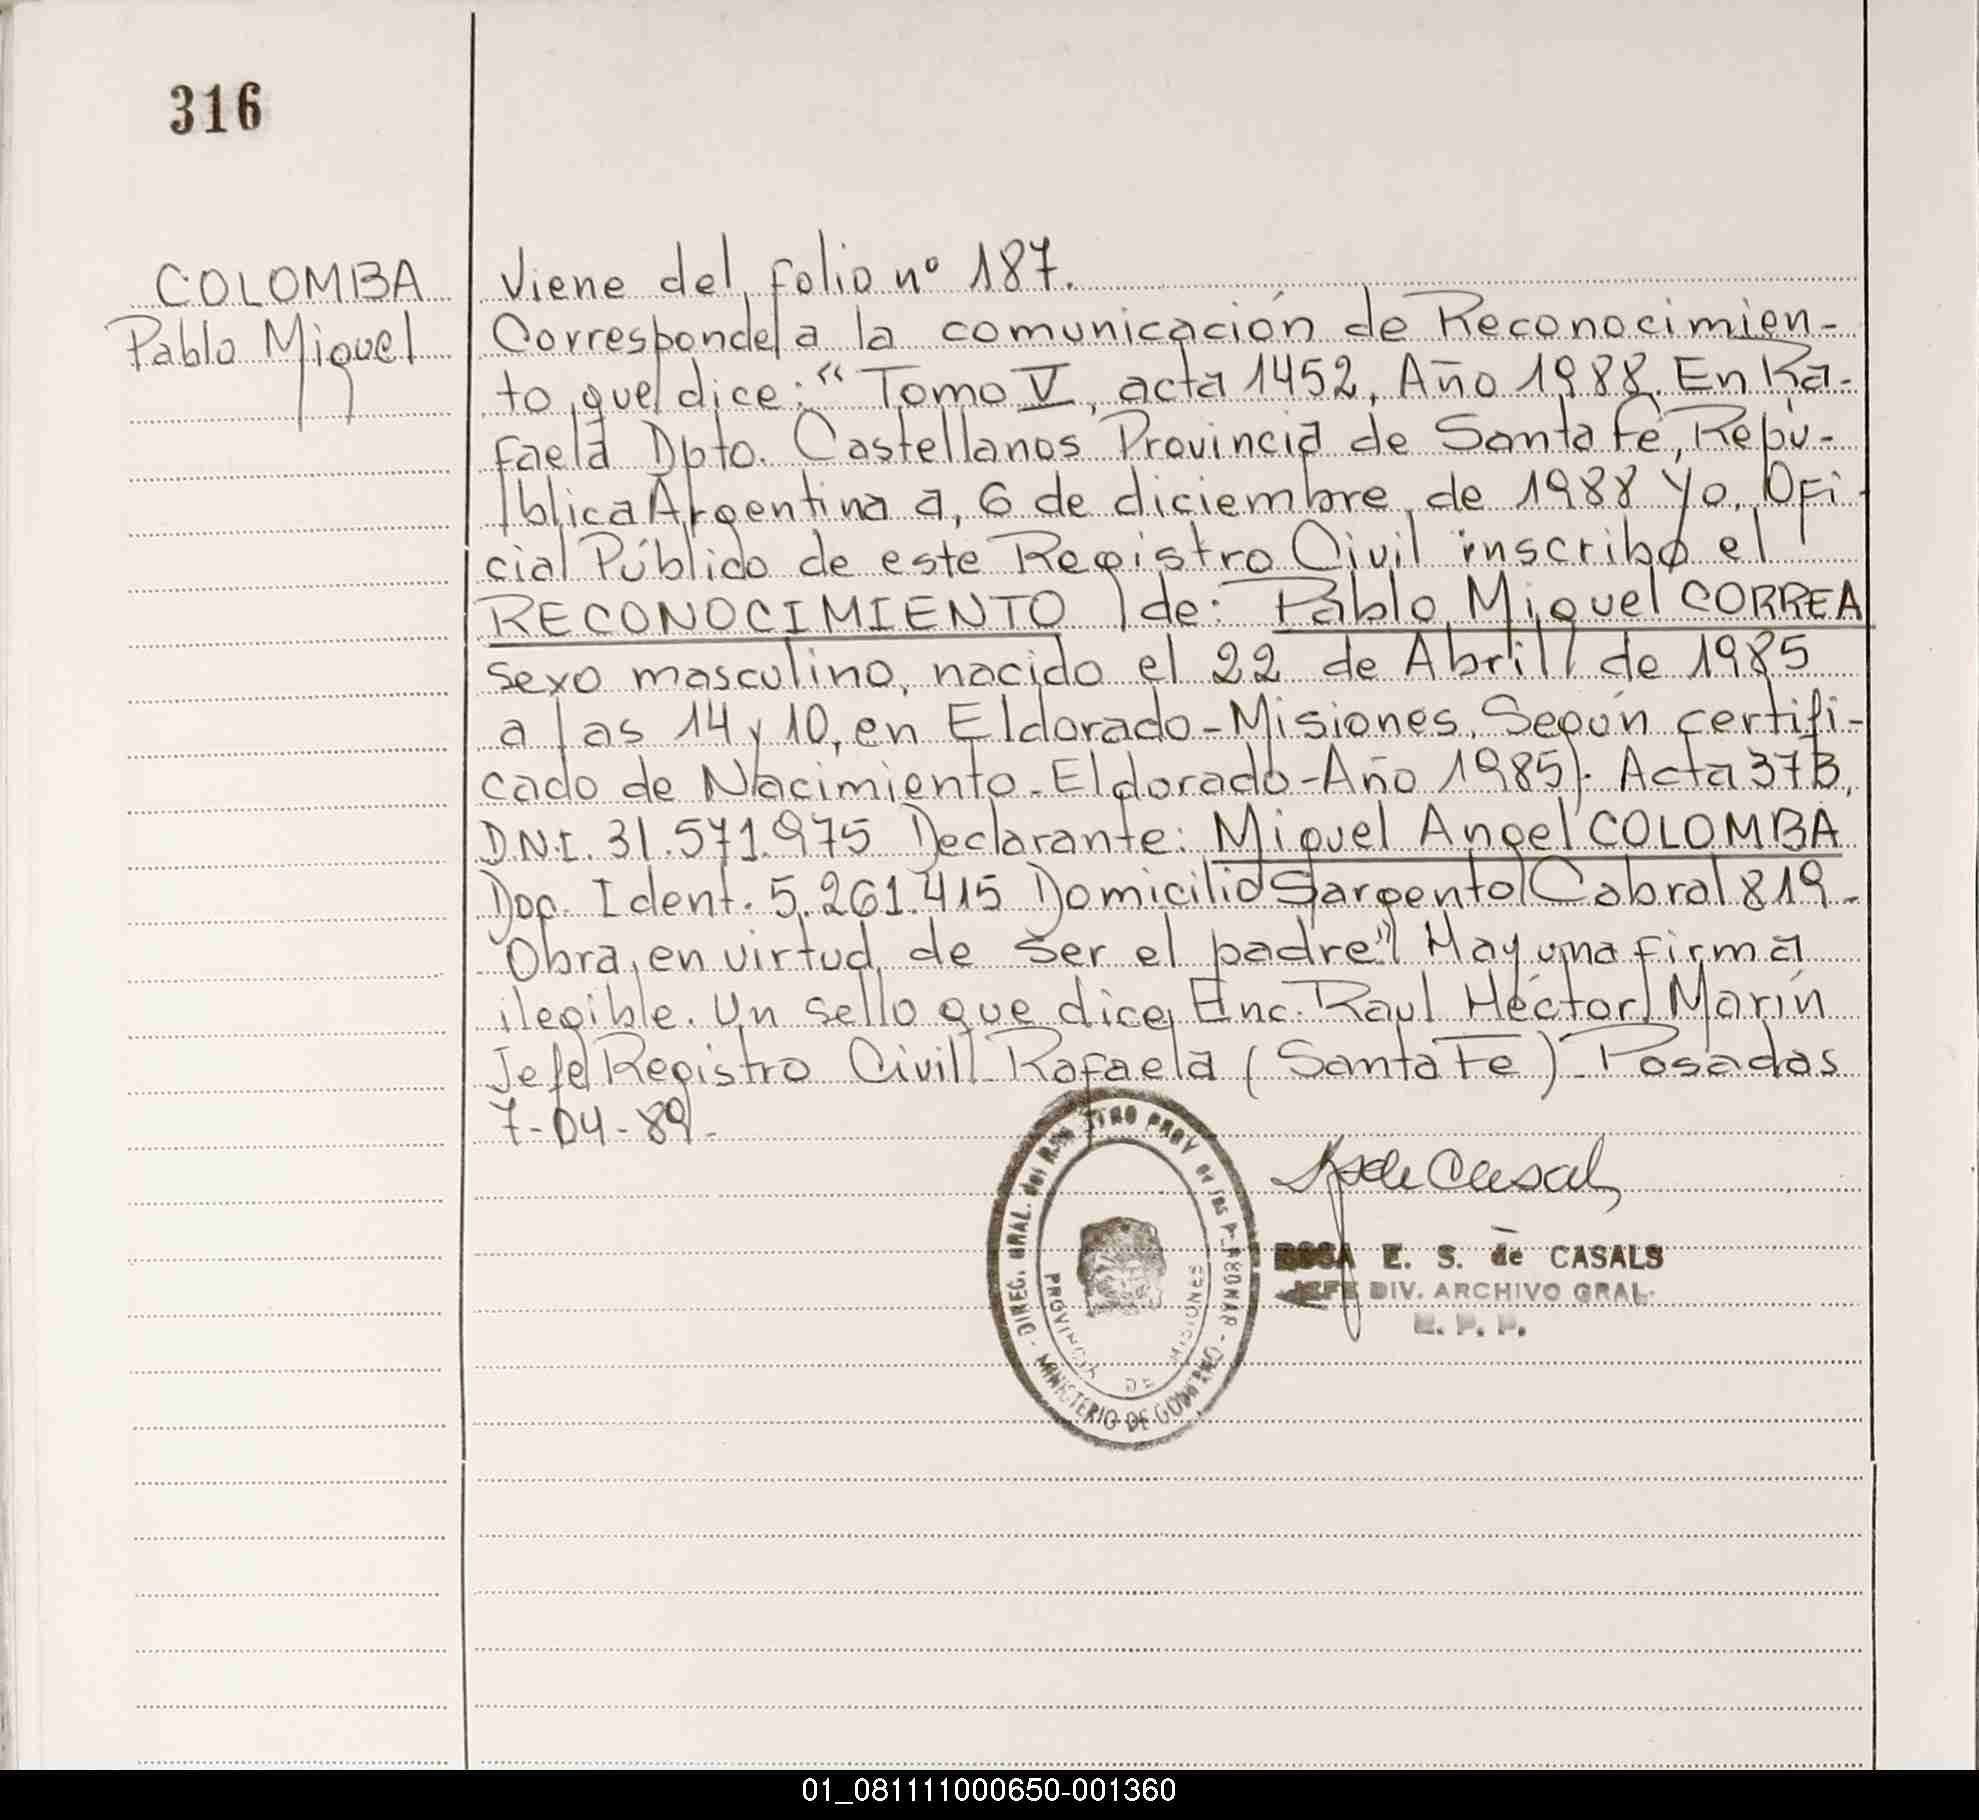 316
COLOMBA
Pablo Miguel
Viene del folio nº 187.
Corresponde a la comunicación de Reconocimien-
to que dice: “Tomo V, acta 1452, Año 1988. En Ra-
faela Dpto. Castellanos Provincia de Santa Fé, Repú-
blica Argentina a, 6 de diciembre de 1988 Yo, Ofi-
cial Público de este Registro Civil inscribo el
RECONOCIMIENTO de: Pablo Miguel CORREA
sexo masculino, nacido el 22 de Abril de 1985
a las 14 y 10, en Eldorado-Misiones. Según certifi-
cado de Nacimiento-Eldorado-Año 1985). Acta 37B,
D.N.I. 31.571.975 Declarante: Miguel Angel COLOMBA
Doc. Ident. 5.261.415 Domicilio Sargento Cabral 819-
Obra, en virtud de ser el padre" Hay una firma
ilegible. Un sello que dice Enc. Raul Héctor Marín
Jefe Registro Civil Rafaela (Santa Fe)-Posadas
7-04-89-
DIREC. GRAL. del REGISTRO PROV de las PERSONAS - MINISTERIO DE GOBIERNO -
PROVINCIA DE MISIONES
ROSA E. S. de CASALS
JEFE DIV. ARCHIVO GRAL.
R. P. P.
01_081111000650-001360